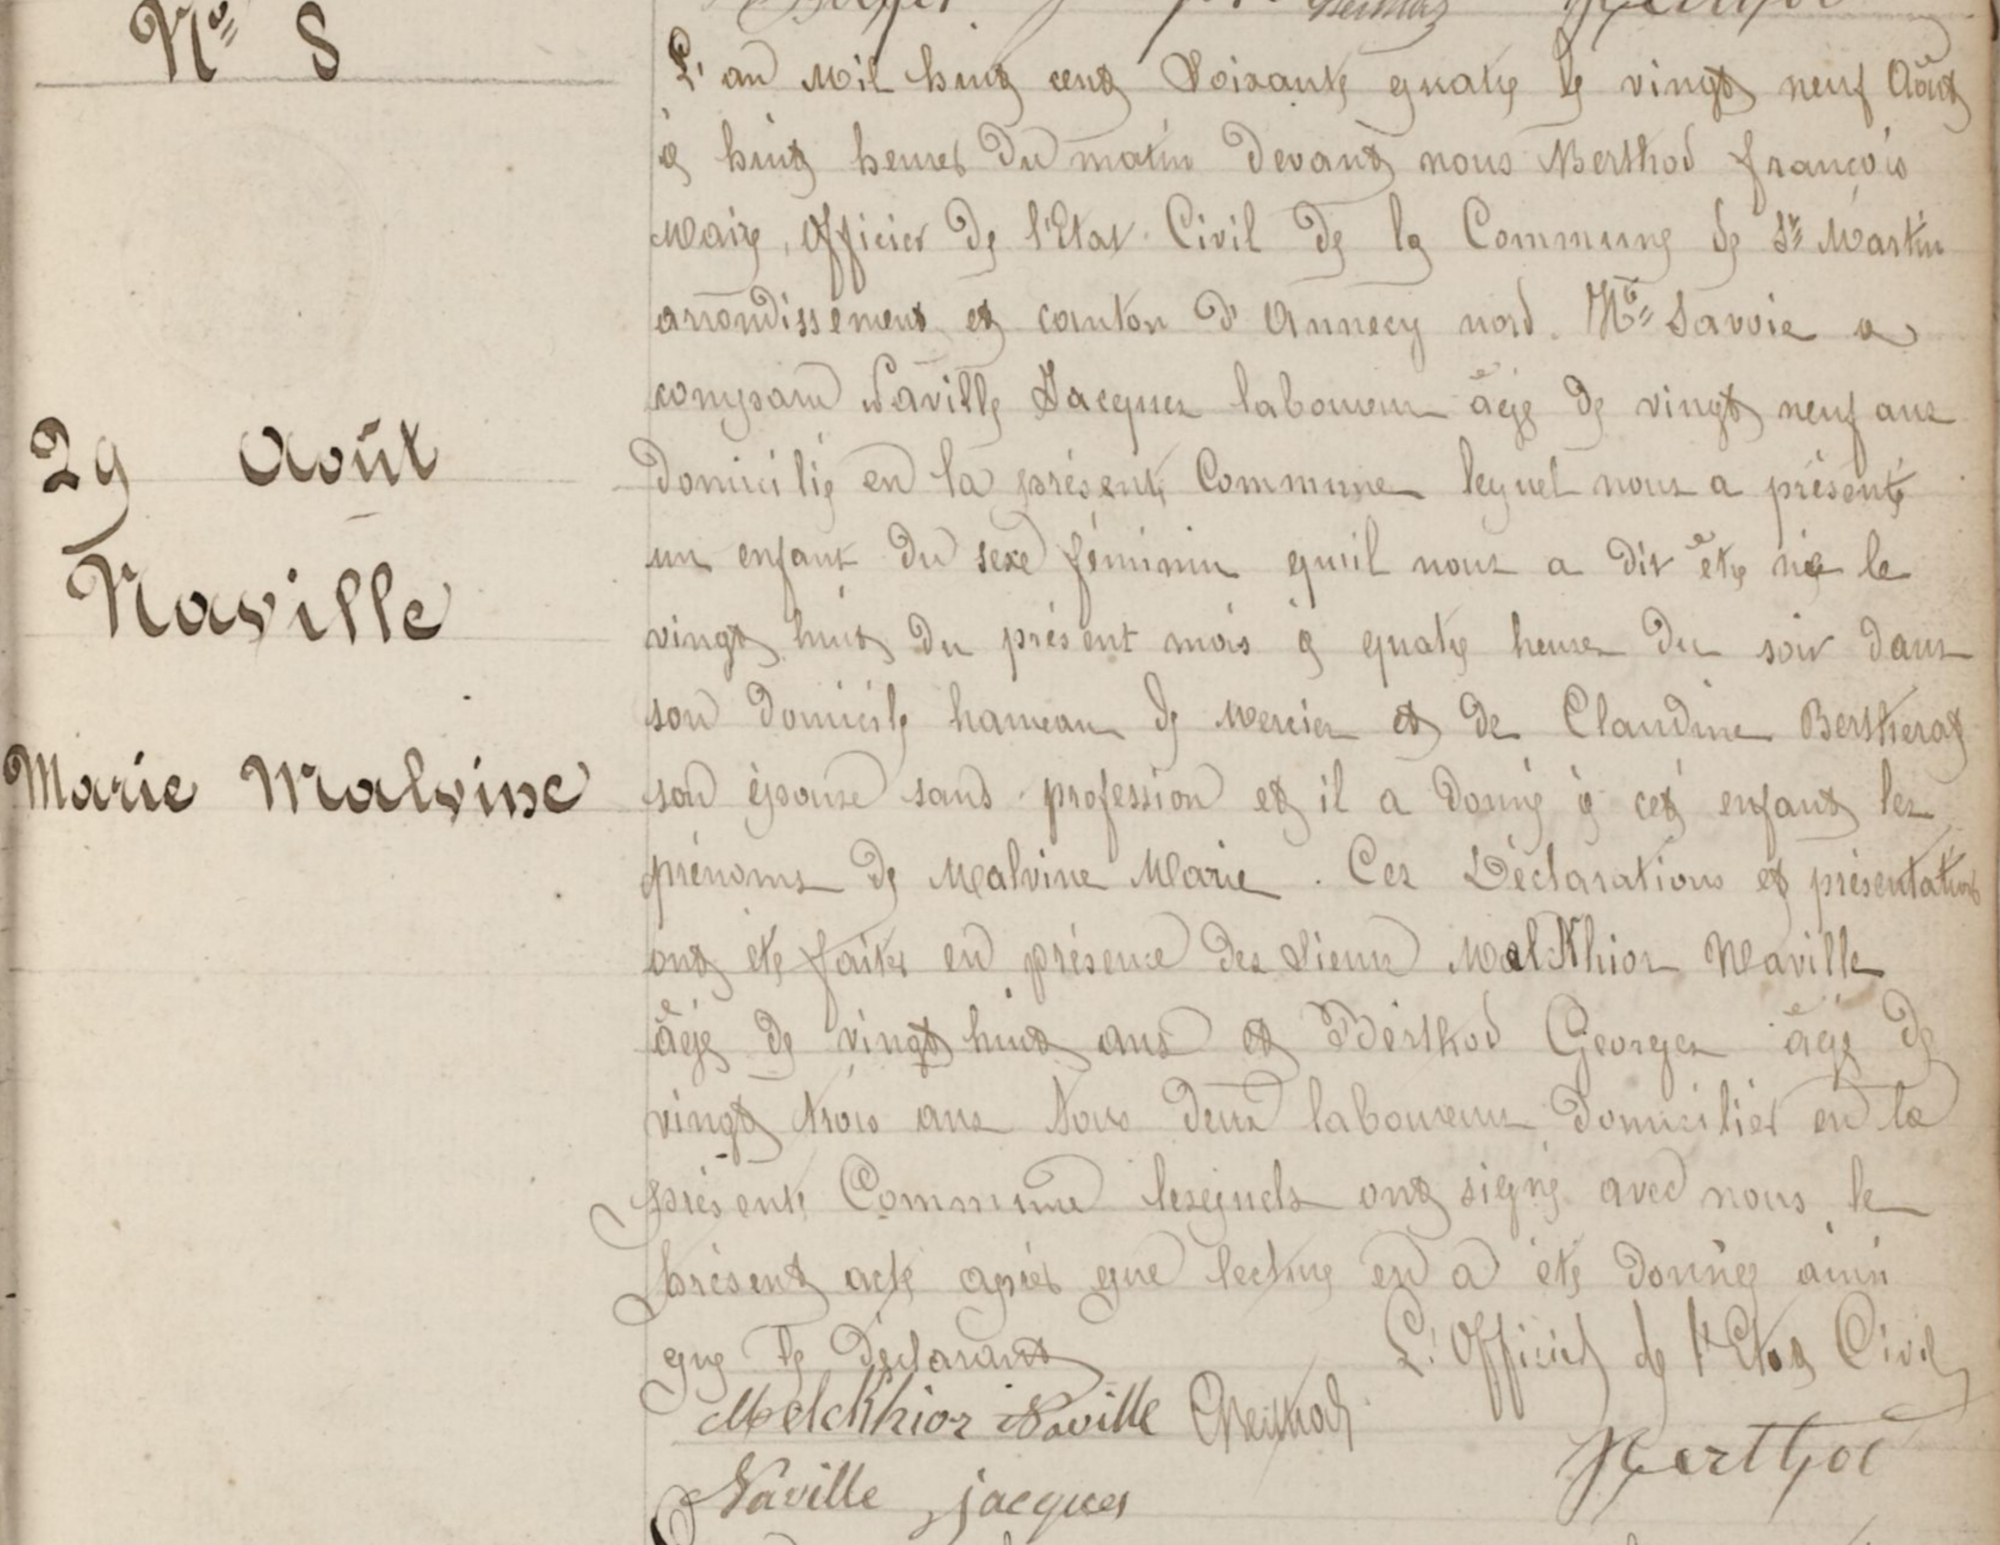 No 8
29 Août
Naville
Marie Malvine
L'an mil huit cent soixante quatre le vingt neuf Août
à huit heures du matin devant nous Berthod françois
Maire, officier de l'Etat Civil de la Commune de St Martin
arrondissement et canton d'Annecy nord. Hte Savoie a
comparu Naville Jacques laboureur âgé de vingt neuf ans
domicilié en la présente Commune lequel nous a présenté
un enfant du sexe féminin qu'il nous a dit être née le
vingt huit du présent mois à quatre heures du soir dans
son domicile hameau de Mercier et de Claudine Bertherat
son épouse sans profession et il a donné à cet enfant les
prénoms de Malvine Marie. Ces Déclarations et présentation
ont été faites en présence des sieurs Melkhior Naville
âgé de vingt huit ans et Berthod Georges âgé de
vingt trois ans tous deux laboureurs domiciliés en la
présente Commune lesquels ont signé avec nous le
présent acte après que lecture en a été donnée ainsi
que le déclarant L'Officier de l'Etat Civil
Melckhior Naville Berthod
Naville jacques Berthod